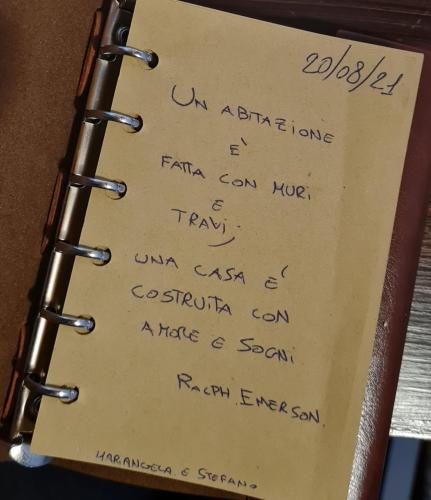 20/08/21
UN ABITAZIONE
E'
FATTA CON MURI
E
TRAVI;
UNA CASA E'
COSTRUITA CON
AMORE E SOGNI
RALPH EMERSON
MARIANGELA E STEFANO